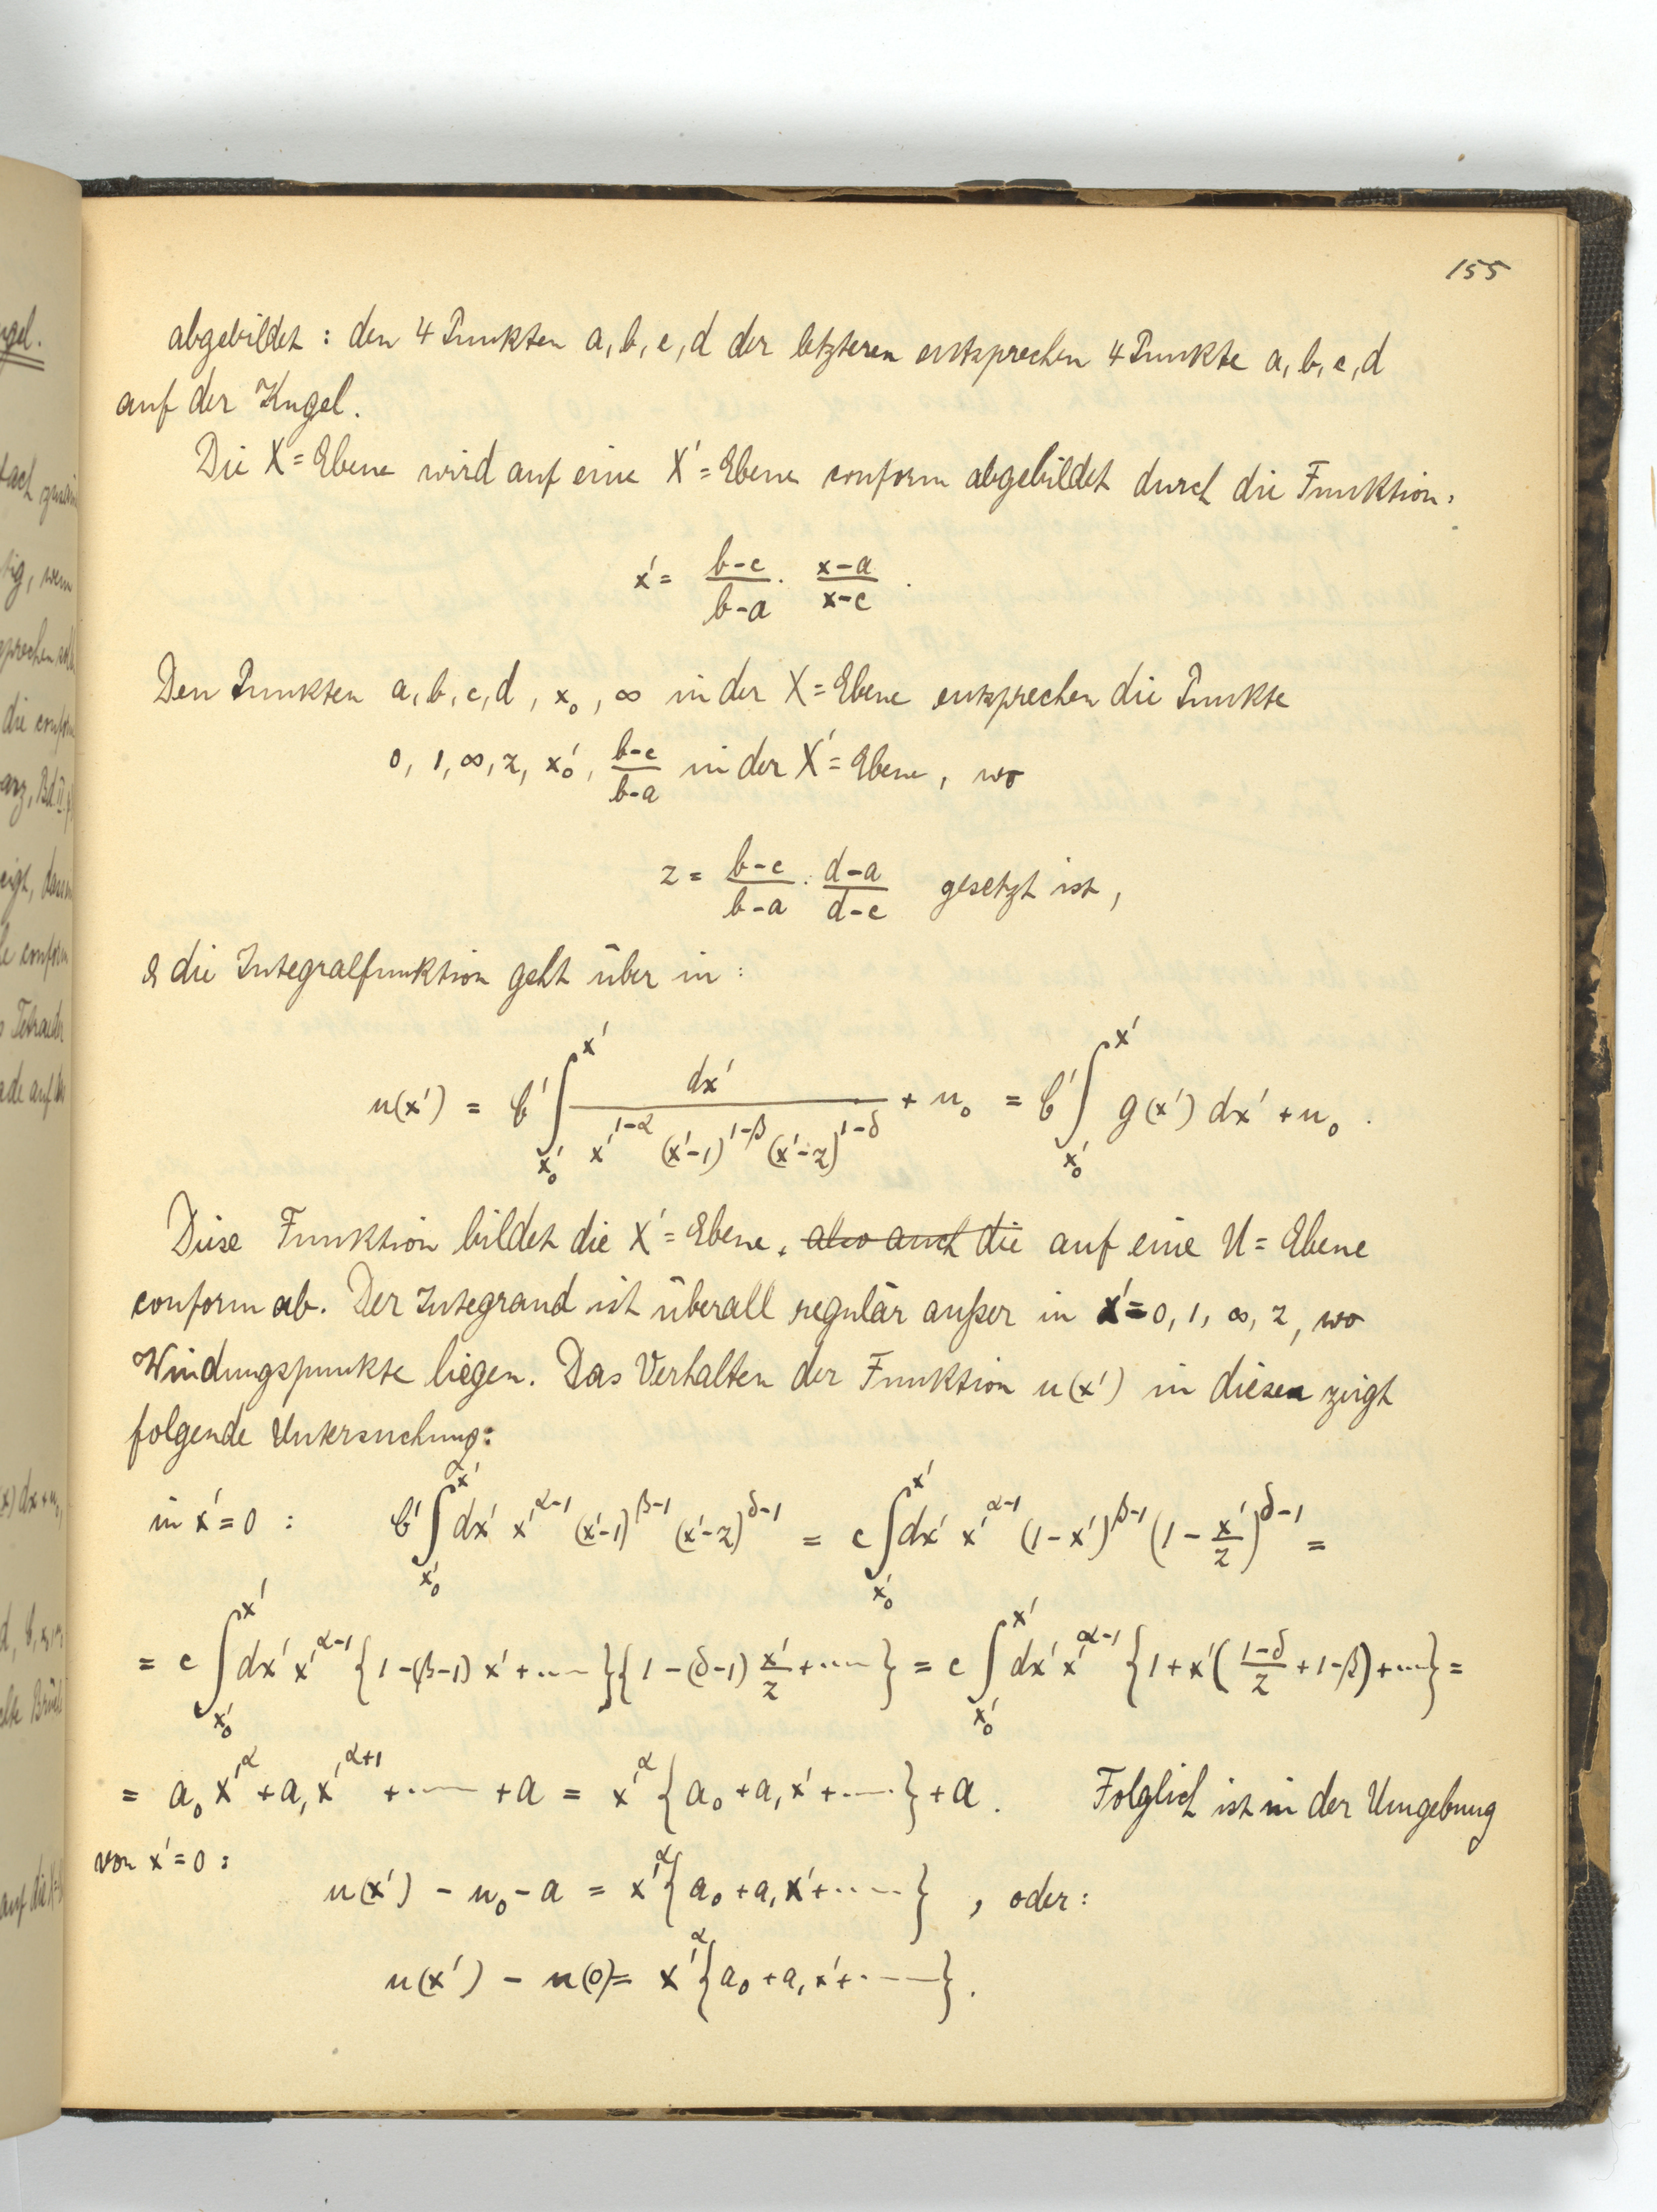 155
abgebildet : den 4 Punkten a, b, c, d der letzteren entsprechen 4 Punkte a, b, c, d
auf der Kugel.
Die X = Ebene wird auf eine X' = Ebene conform abgebildet durch die Funktion:
x' = \frac{b-c}{b-a} \cdot \frac{x-a}{x-c} .
Den Punkten a, b, c, d, x_0, ∞ in der X = Ebene entsprechen die Punkte
0, 1, ∞, z, x_0', \frac{b-c}{b-a} in der X' = Ebene, wo
z = \frac{b-c}{b-a} \cdot \frac{d-a}{d-c} gesetzt ist,
& die Integralfunktion geht über in :
u(x') = b' \int_{x_0'}^{x'} \frac{dx'}{x'^{1-α} (x'-1)^{1-β} (x'-z)^{1-δ}} + u_0 = b' \int_{x_0'}^{x'} g(x') dx' + u_0 .
Diese Funktion bildet die X' = Ebene, also auch die auf eine U = Ebene
conform ab. Der Integrand ist überall regulär außer in x' = 0, 1, ∞, z, wo
Windungspunkte liegen. Das Verhalten der Funktion u(x') in diesen zeigt
folgende Untersuchung:
in x' = 0 : b' \int_{x_0'}^{x'} dx' x'^{α-1} (x'-1)^{β-1} (x'-z)^{δ-1} = c \int_{x_0'}^{x'} dx' x'^{α-1} (1-x')^{β-1} (1-\frac{x'}{z})^{δ-1} =
= c \int_{x_0'}^{x'} dx' x'^{α-1} {1-(β-1) x' + ....}{1-(δ-1) \frac{x'}{z} + ....} = c \int_{x_0'}^{x'} dx' x'^{α-1} {1 + x'(\frac{1-δ}{z} + 1-β) + ....} =
= a_0 x'^α + a_1 x'^{α+1} + ..... + a = x'^α {a_0 + a_1 x' + .....} + a . Folglich ist in der Umgebung
von x' = 0 :
u(x') - u_0 - a = x'^α {a_0 + a_1 x' + .....} , oder :
u(x') - u(0) = x'^α {a_0 + a_1 x' + .....} .